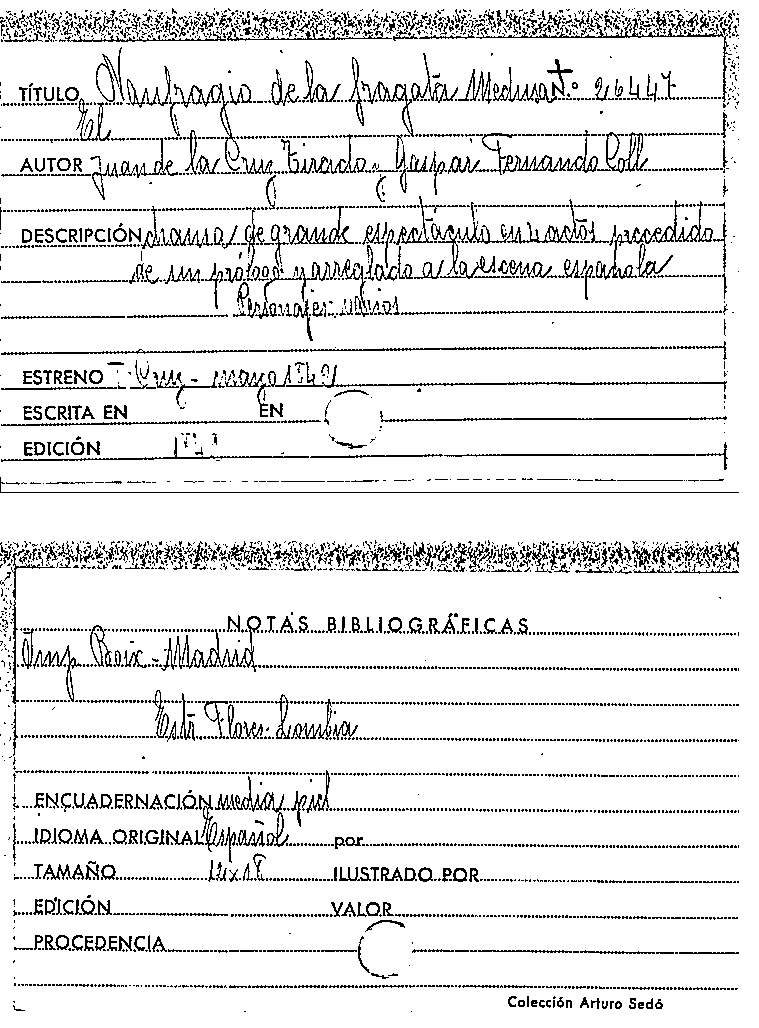 TÍTULO Naufragio de la fragata Medusa N.º 26447
El
AUTOR Juan de la Cruz Tirado y Gaspar Fernando Coll
DESCRIPCIÓN drama de grande espectáculo en 4 actos precedido
de un prólogo y arreglado a la escena española
Personajes: varios
ESTRENO T. Cruz - mayo
ESCRITA EN EN
EDICIÓN
NOTAS BIBLIOGRÁFICAS
Imp. Boix - Madrid
Flores Lombia
ENCUADERNACIÓN media piel
IDIOMA ORIGINAL Español por
TAMAÑO 12x18 ILUSTRADO POR
EDICIÓN VALOR
PROCEDENCIA
Colección Arturo Sedó